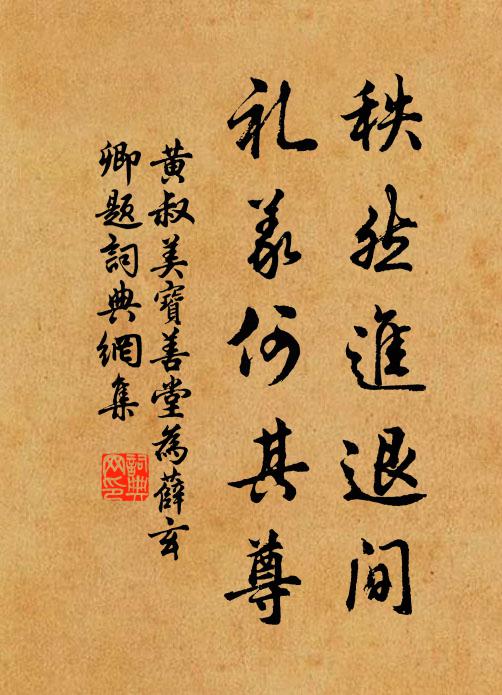 秩然進退間
礼義何其尊
黄叔美寶善堂為薛玄
卿題詞典網集
詞典網印